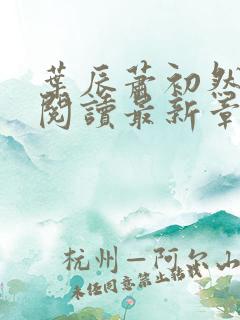 葉辰蕭初然
閱讀最新章
杭州–阿尔山
未经同意禁止转载